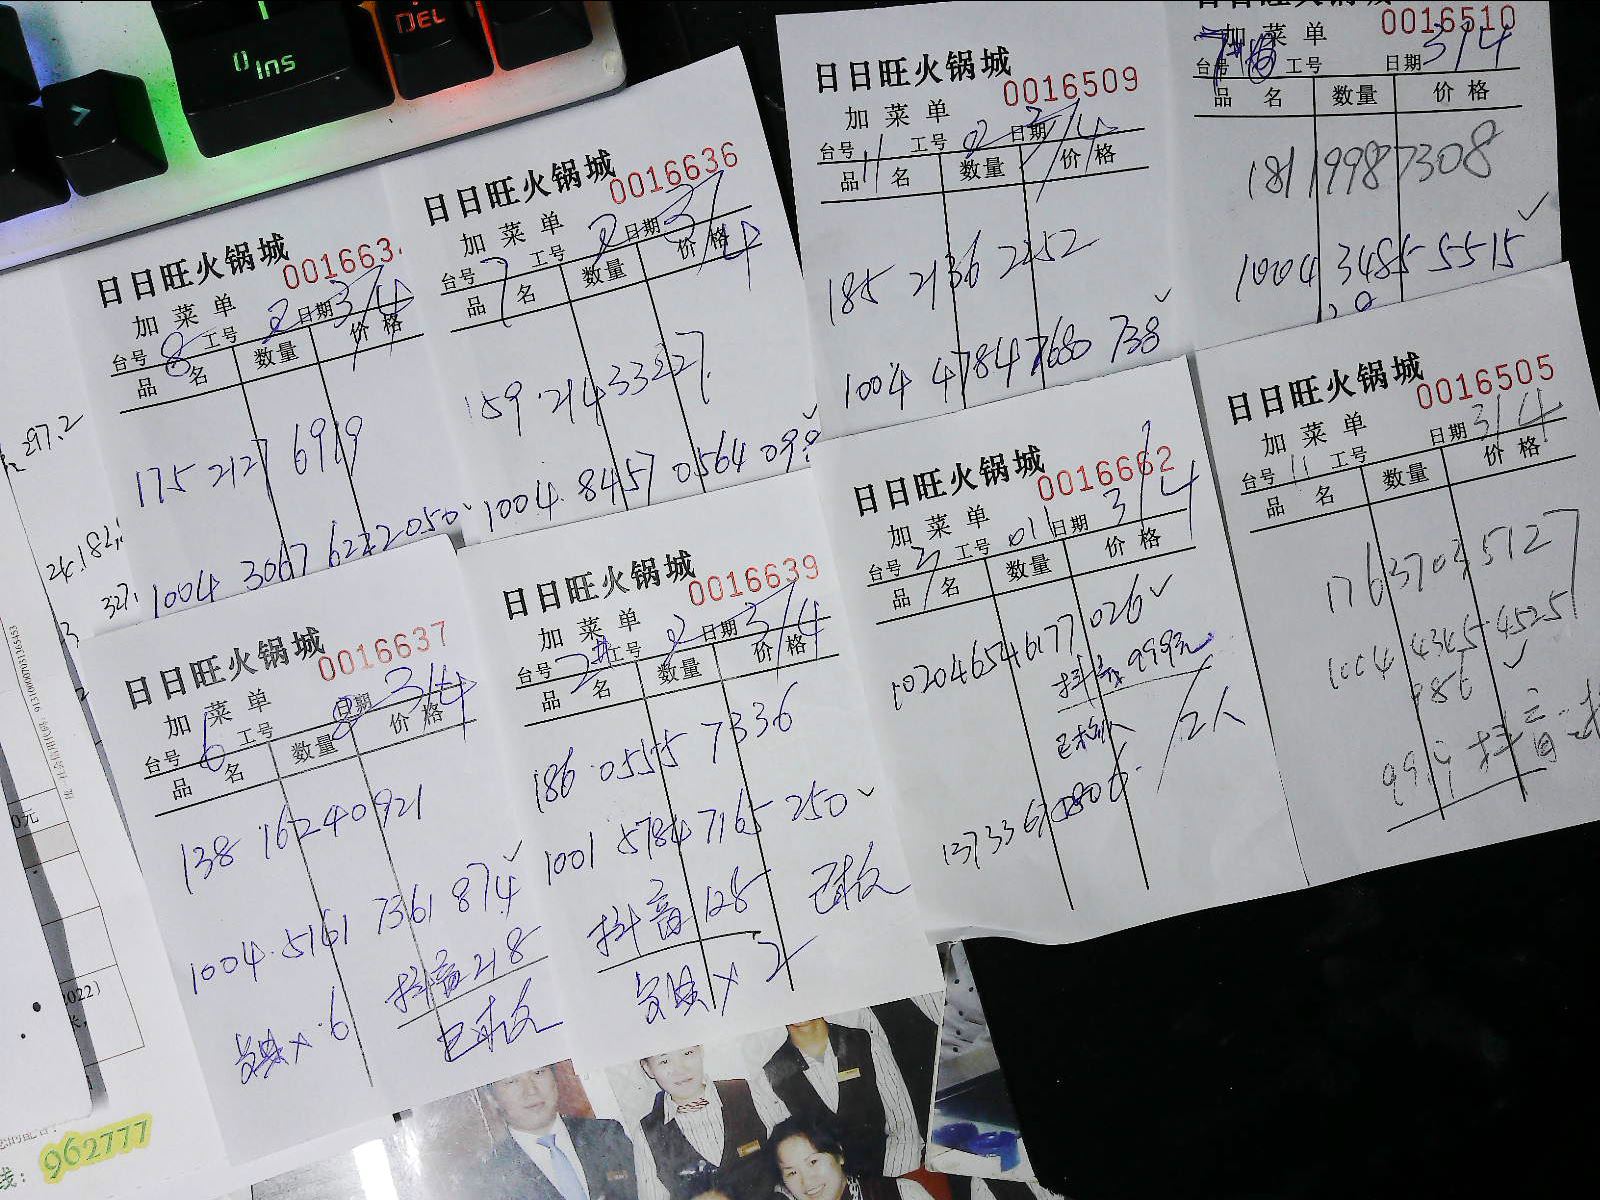 DEL
0 Ins
日日旺火锅城
001663
加菜单
台号 8 工号 2 日期 3/4
品名 数量 价格
175 2127 6919
1004 3067 6222050
日日旺火锅城
0016636
加菜单
台号 7 工号 2 日期 3/4
品名 数量 价格
159 214 33227
1004 8457 0564 099
日日旺火锅城
0016509
加菜单
台号 11 工号 2 日期 3/4
品名 数量 价格
185 2136 2252
1004 4784 7680 738
0016510
加菜单
台号 工号 日期 3/4
品名 数量 价格
181 1998 7308
1004 3485 5515
日日旺火锅城
0016637
加菜单
台号 6 工号 2 日期 3/4
品名 数量 价格
138 16240921
1004 5161 7361 874
抖音218
已核
×6
日日旺火锅城
0016639
加菜单
台号 2# 工号 2 日期 3/4
品名 数量 价格
186 0555 7336
1001 5784 7165 250
抖音128 已核
×2
日日旺火锅城
0016662
加菜单
台号 3 工号 011 日期 3/4
品名 数量 价格
102046546177026
抖音 999元
2人
日日旺火锅城
0016505
加菜单
台号 11 工号 日期 3/4
品名 数量 价格
176 3703 5127
1004 4345 4525
986
999 抖音
297.2
24.182
327
962777